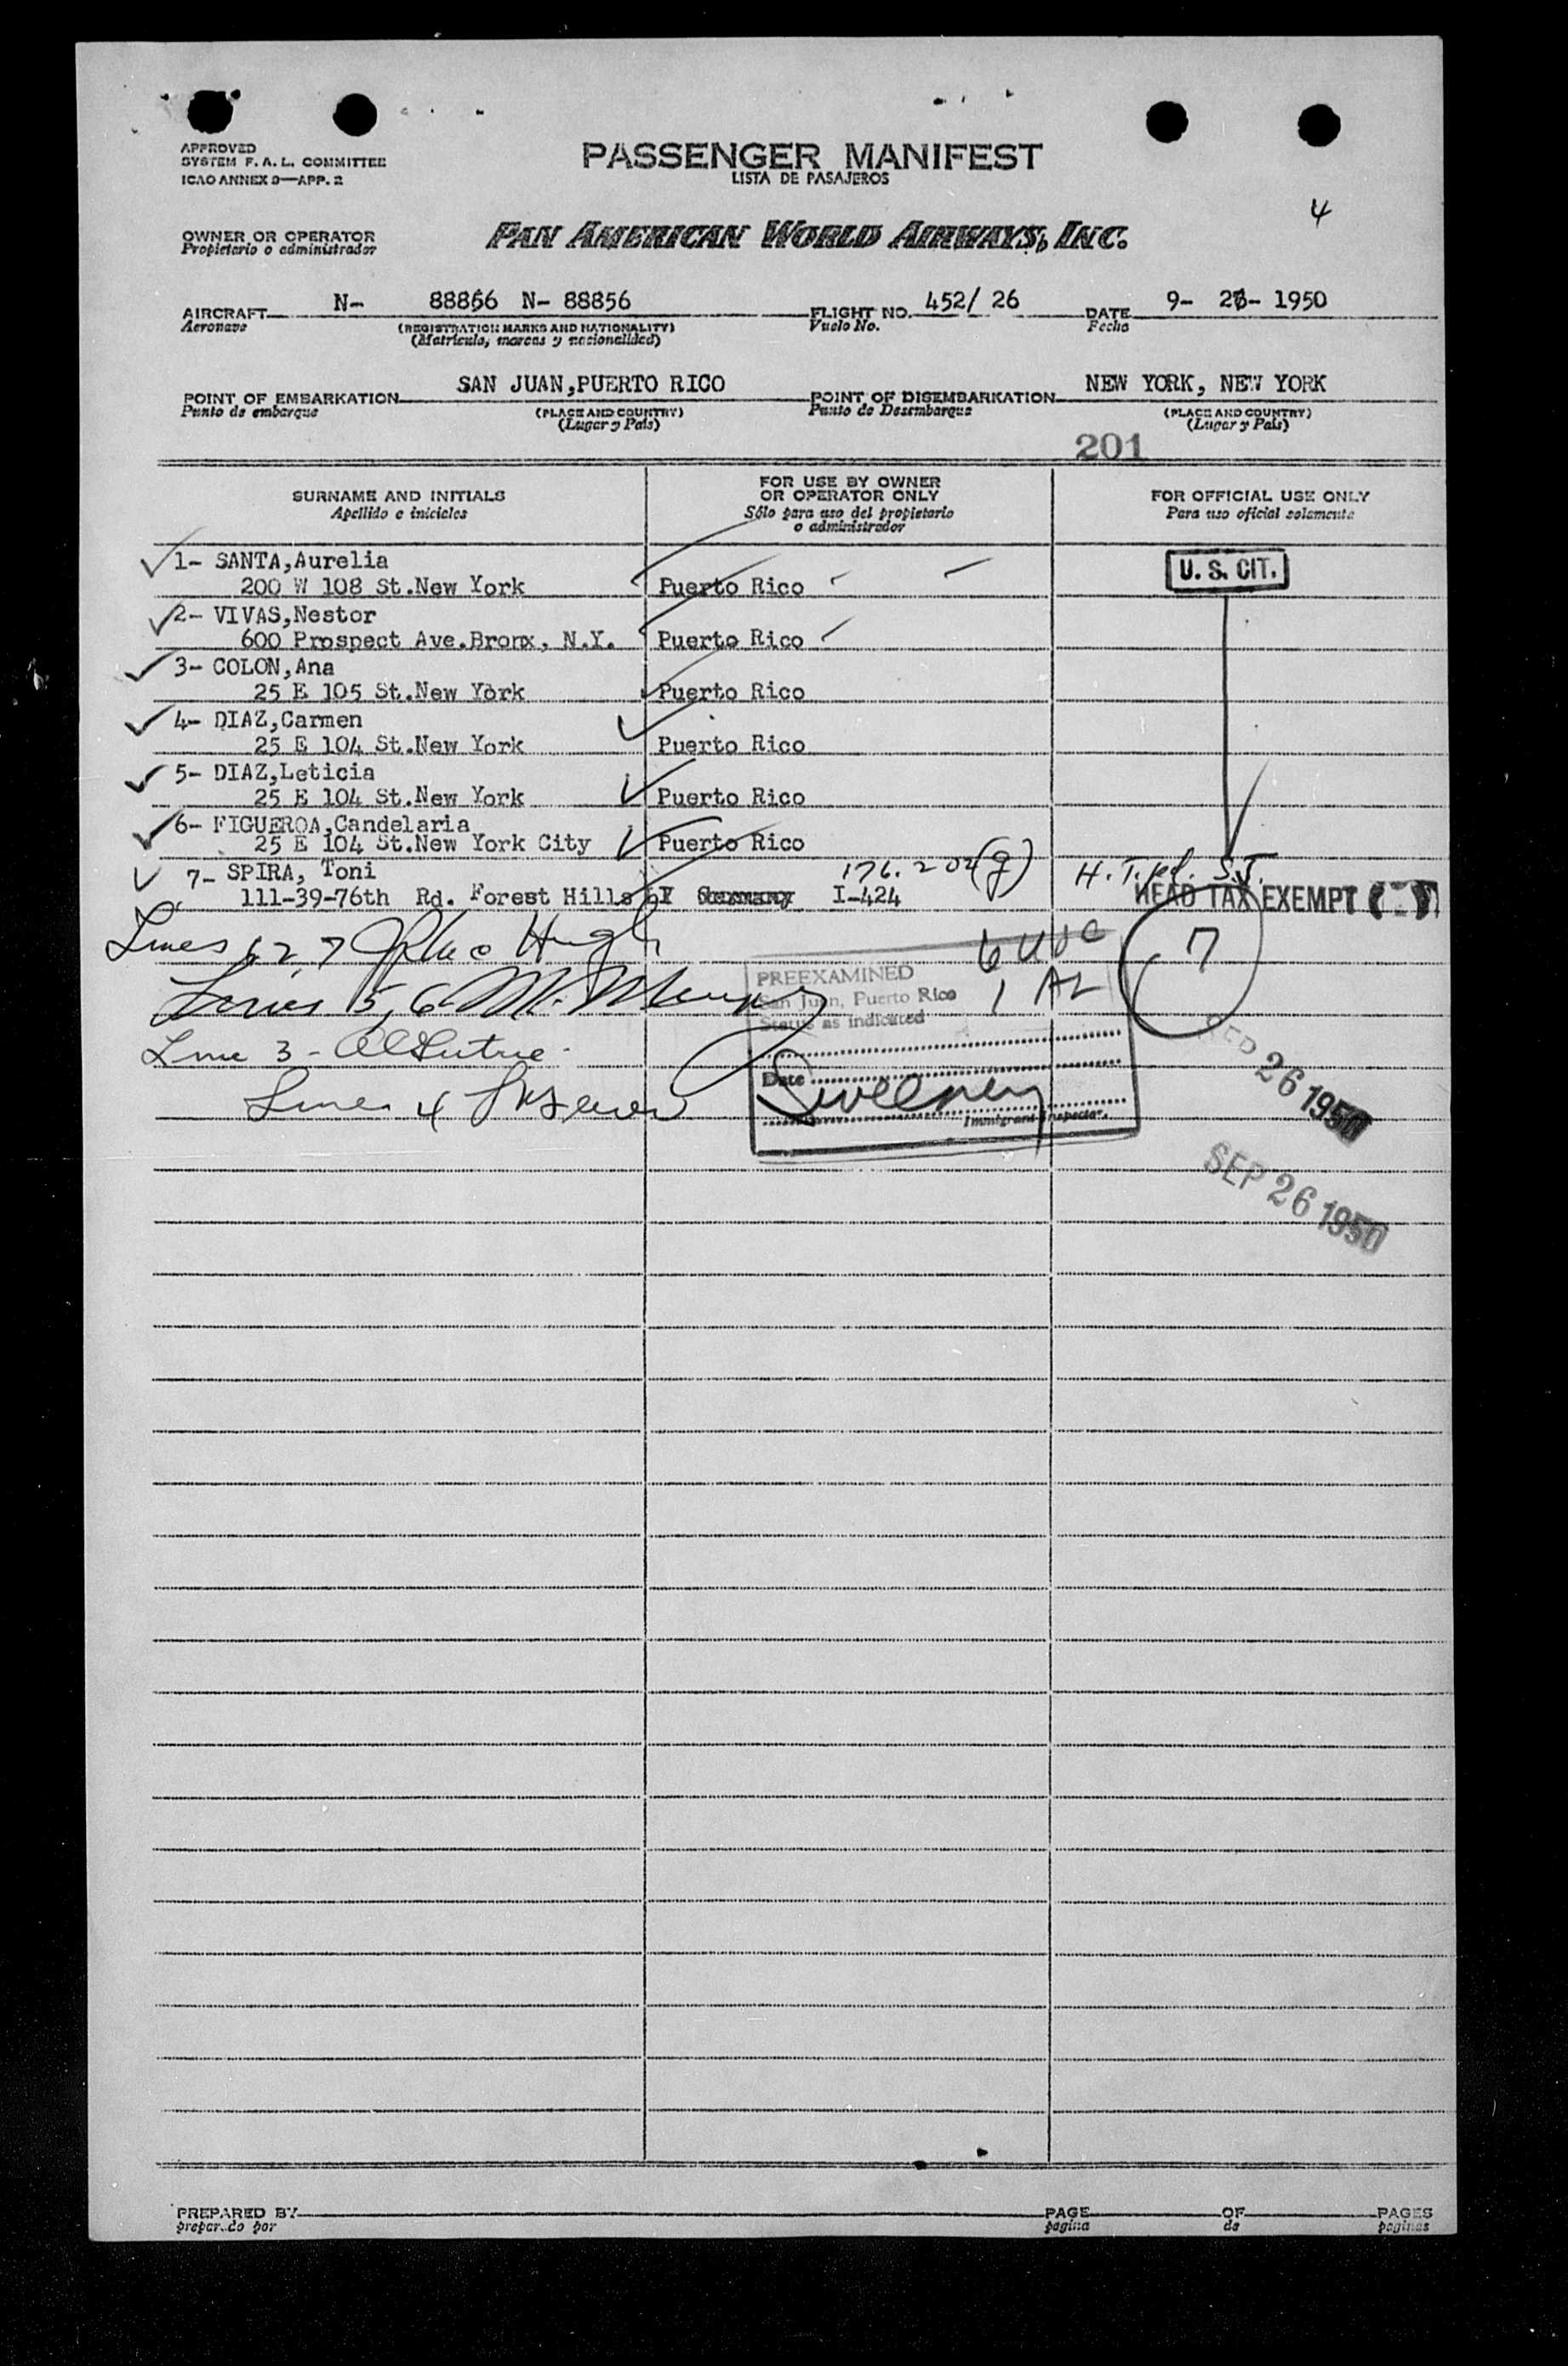 APPROVED
SYSTEM F. A. L. COMMITTEE
ICAO ANNEX 9—APP. 2
PASSENGER MANIFEST
LISTA DE PASAJEROS
4
OWNER OR OPERATOR
Propietario o administrador
PAN AMERICAN WORLD AIRWAYS, INC.
AIRCRAFT N- 88856 N- 88856 FLIGHT NO. 452/ 26 DATE 9- 26- 1950
Aeronave (REGISTRATION MARKS AND NATIONALITY) Vuelo No. Fecha
(Matricula, marcas y nacionalidad)
POINT OF EMBARKATION SAN JUAN,PUERTO RICO POINT OF DISEMBARKATION NEW YORK, NEW YORK
Punto de embarque (PLACE AND COUNTRY) Punto de Desembarque (PLACE AND COUNTRY)
(Lugar y País) (Lugar y País)
201
SURNAME AND INITIALS FOR USE BY OWNER OR OPERATOR ONLY FOR OFFICIAL USE ONLY
Apellido e iniciales Sólo para uso del propietario o administrador Para uso oficial solamente
1- SANTA,Aurelia
200 W 108 St.New York Puerto Rico U. S. CIT.
2- VIVAS,Nestor
600 Prospect Ave.Bronx, N.Y. Puerto Rico
3- COLON,Ana
25 E 105 St.New York Puerto Rico
4- DIAZ,Carmen
25 E 104 St.New York Puerto Rico
5- DIAZ,Leticia
25 E 104 St.New York Puerto Rico
6- FIGUEROA,Candelaria
25 E 104 St.New York City Puerto Rico
7- SPIRA, Toni 176.202(g) H.T.pd. S.J.
111-39-76th Rd. Forest Hills I-424 HEAD TAX EXEMPT
Lines 1, 2, 7
7
Lines 5, 6
1 AL
PREEXAMINED
San Juan, Puerto Rico
Status as indicated
Line 3 -
Date
Sweeney
Immigrant Inspector.
Lines 4
SEP 26 1950
SEP 26 1950
PREPARED BY PAGE OF PAGES
preparado por página de páginas